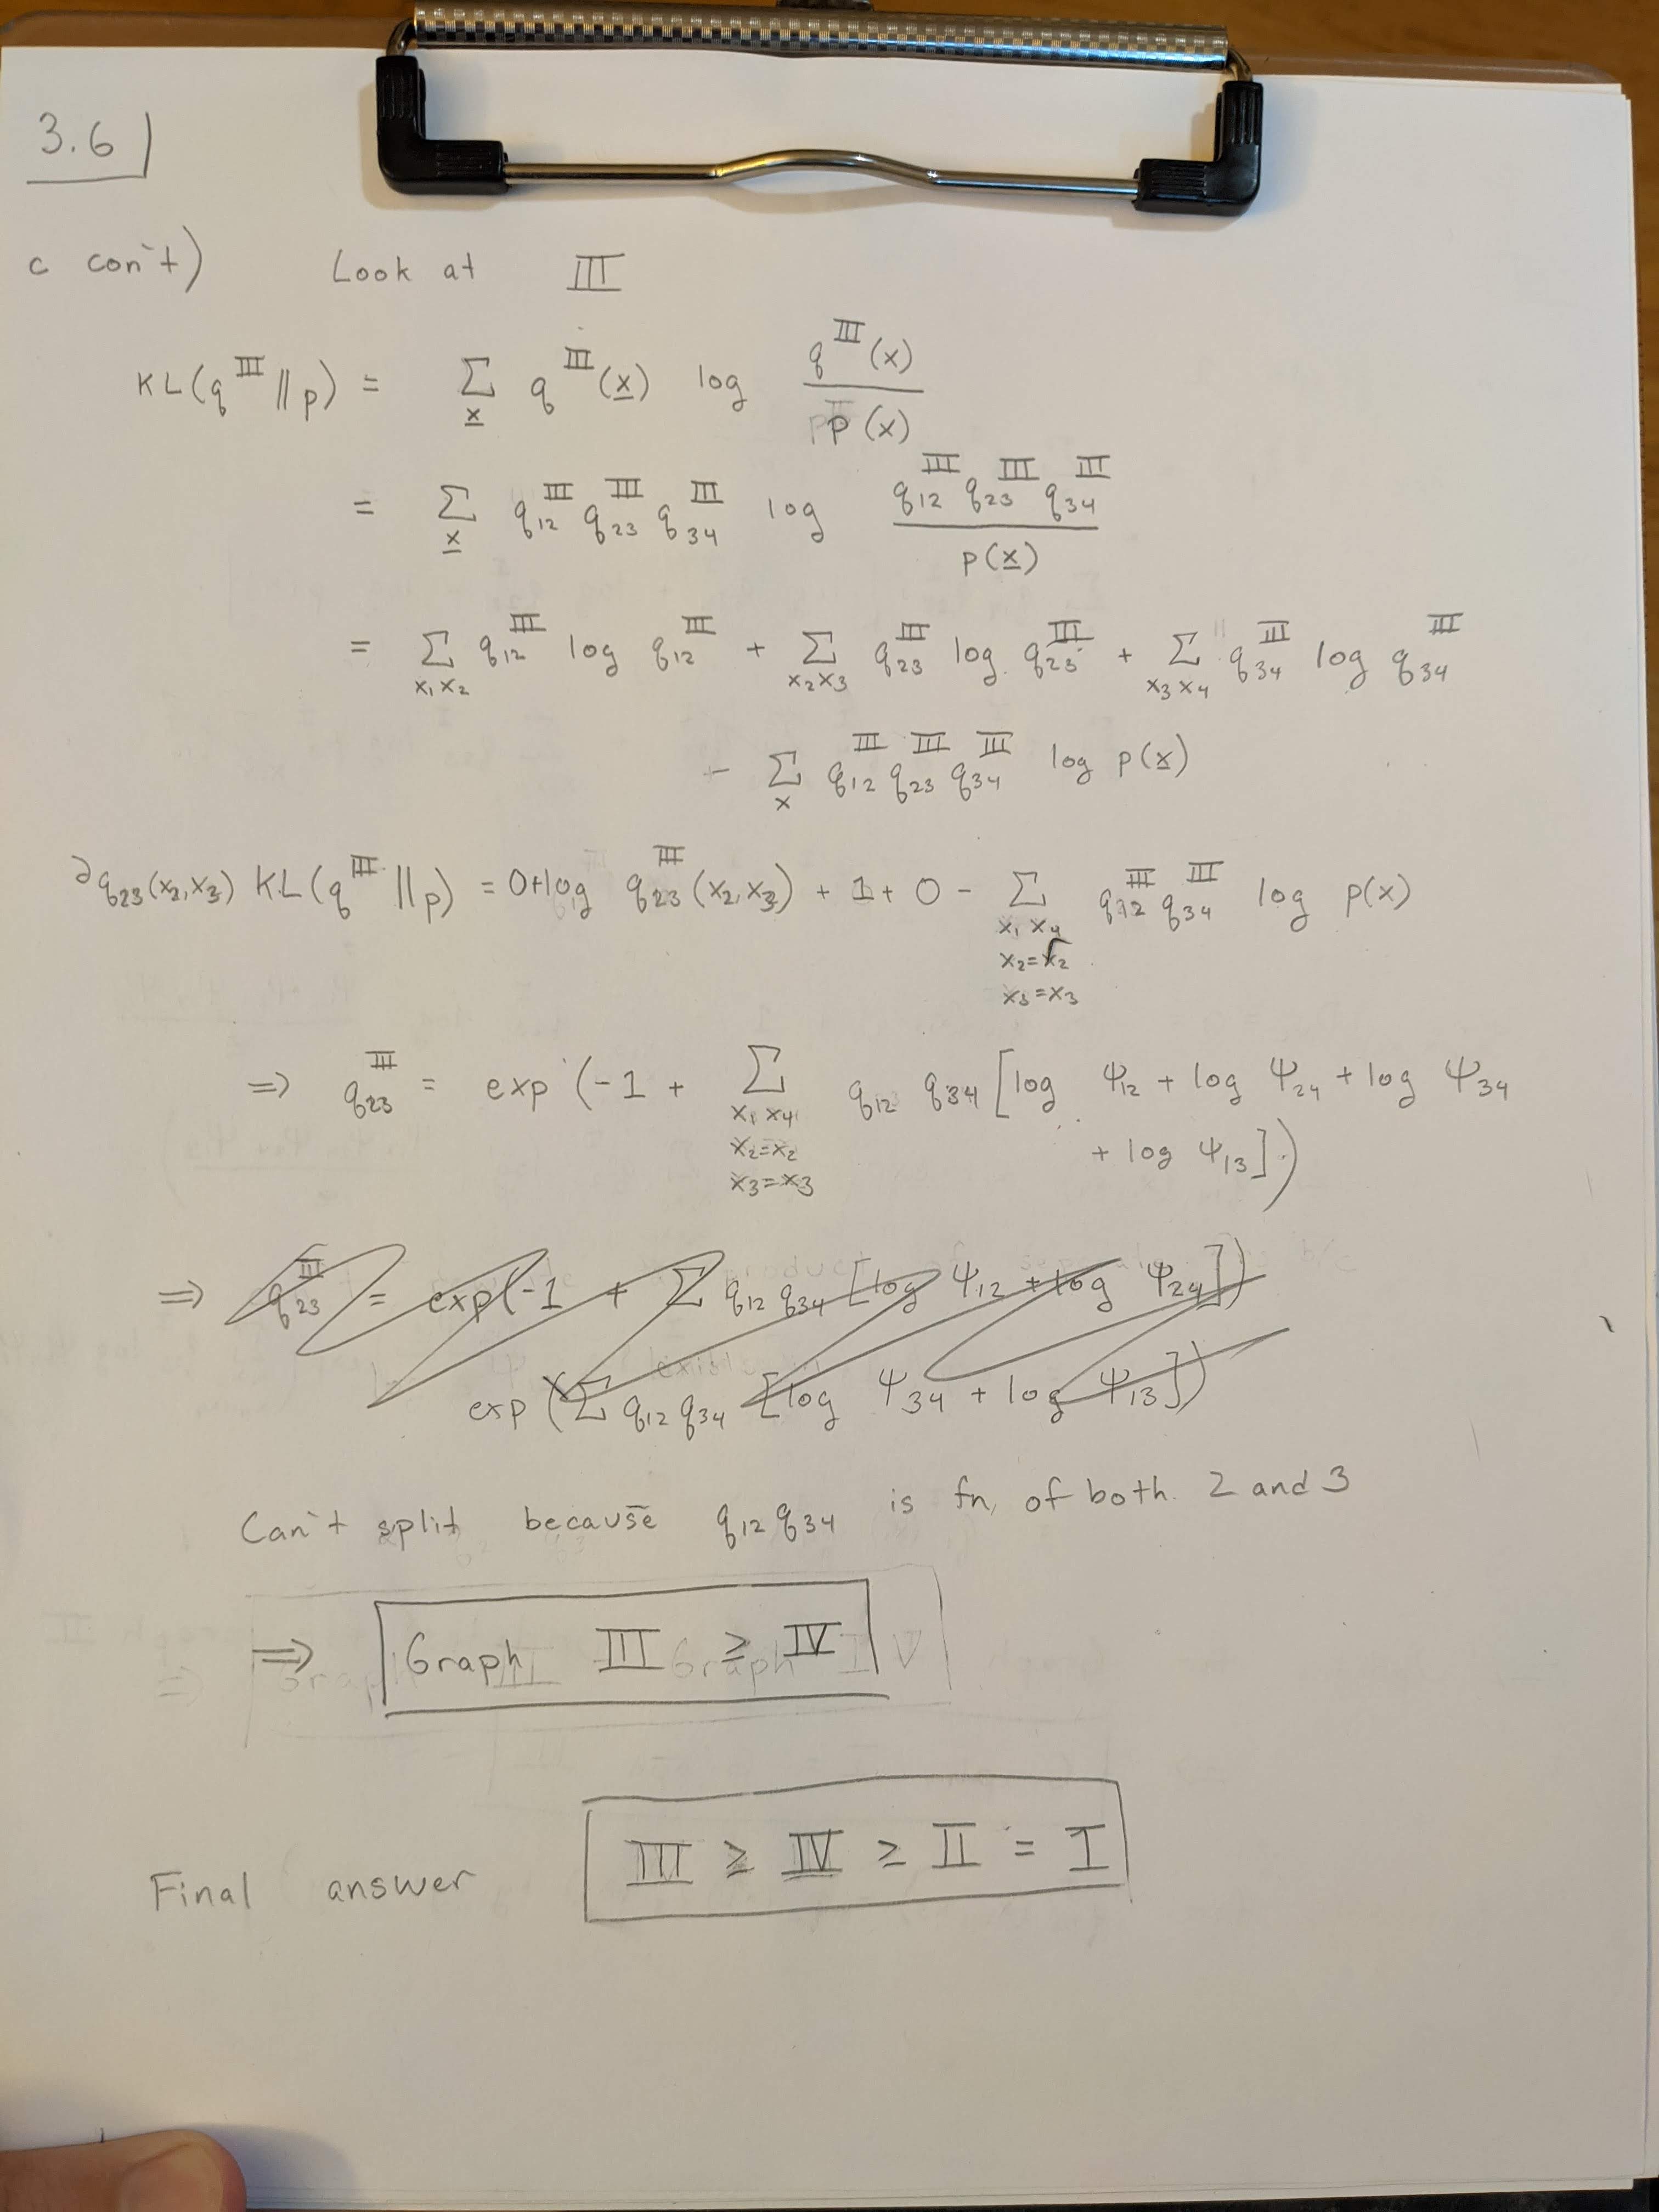 3.6
c con't) Look at III
KL(q^III || p) = Σ_x q^III(x) log q^III(x) / p(x)
= Σ_x q12^III q23^III q34^III log q12^III q23^III q34^III / p(x)
= Σ_{x1 x2} q12^III log q12^III + Σ_{x2 x3} q23^III log q23^III + Σ_{x3 x4} q34^III log q34^III
- Σ_x q12^III q23^III q34^III log p(x)
∂q23(x2,x3) KL(q^III || p) = 0 + log q23^III(x2,x3) + 1 + 0 - Σ_{x1 x4 x2=x2 x3=x3} q12^III q34^III log p(x)
⇒ q23^III = exp(-1 + Σ_{x1 x4 x2=x2 x3=x3} q12 q34 [log Ψ12 + log Ψ24 + log Ψ34
+ log Ψ13])
⇒ q23^III = exp(-1 + Σ q12 q34 [log Ψ12 + log Ψ24])
exp(Σ q12 q34 [log Ψ34 + log Ψ13])
Can't split because q12 q34 is fn. of both 2 and 3
⇒ Graph III ≥ IV
Final answer III ≥ IV ≥ II = I